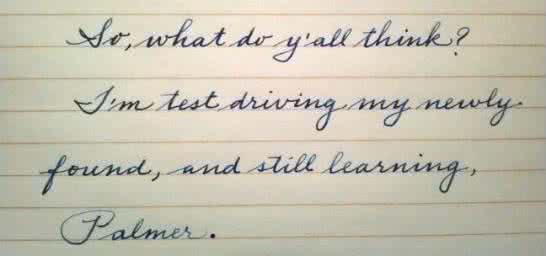 So, what do y'all think?
I'm test driving my newly
found, and still learning,
Palmer.